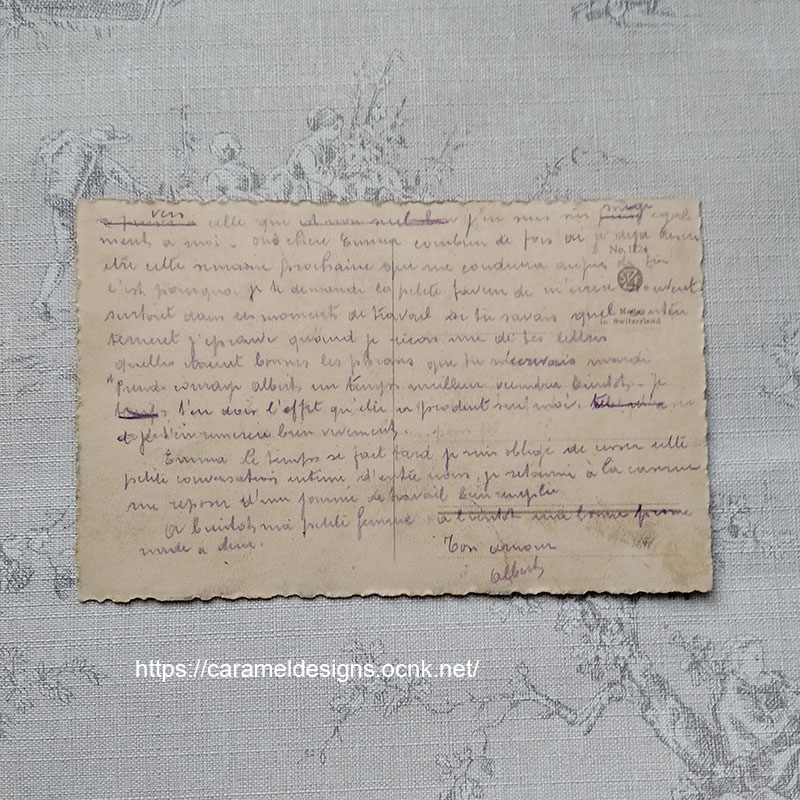 vers
celle que j'en suis sûr égale
ment à moi. Oh chère Emma combien de fois ai je déjà
No. 1224
être cette semaine prochaine que me conduira auprès de toi
c'est pourquoi je te demande la petite faveur de m'écrire souvent
Made
in Switzerland
surtout dans ces moments de travail si tu savais quel conten
tement j'éprouve quand je reçois une de tes lettres
quelles étaient bonnes les paroles que tu m'écrivais mardi
"Prends courage albert un temps meilleur viendra bientôt. Je
t'en dois l'effet qu'elle a produit sur moi.
et je t'en remercie bien vivement.
Emma le temps se fait tard je suis obligé de cesser cette
petite conversation intime d'entre nous, je retourne à la caserne
me reposer d'une journée de travail bien remplie
A bientôt ma petite femme a bientôt ma bonne
à deux.
Ton amour
Albert
https://carameldesigns.ocnk.net/